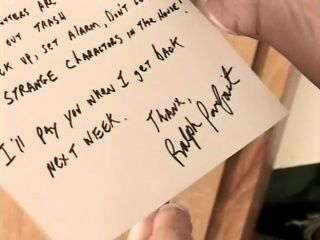 OUT TRASH
UP, SET ALARM. DON'T
STRANGE CHARACTORS IN THE HOUSE!
I'LL PAY YOU WHEN I GET BACK
NEXT WEEK.
THANX,
RALPH